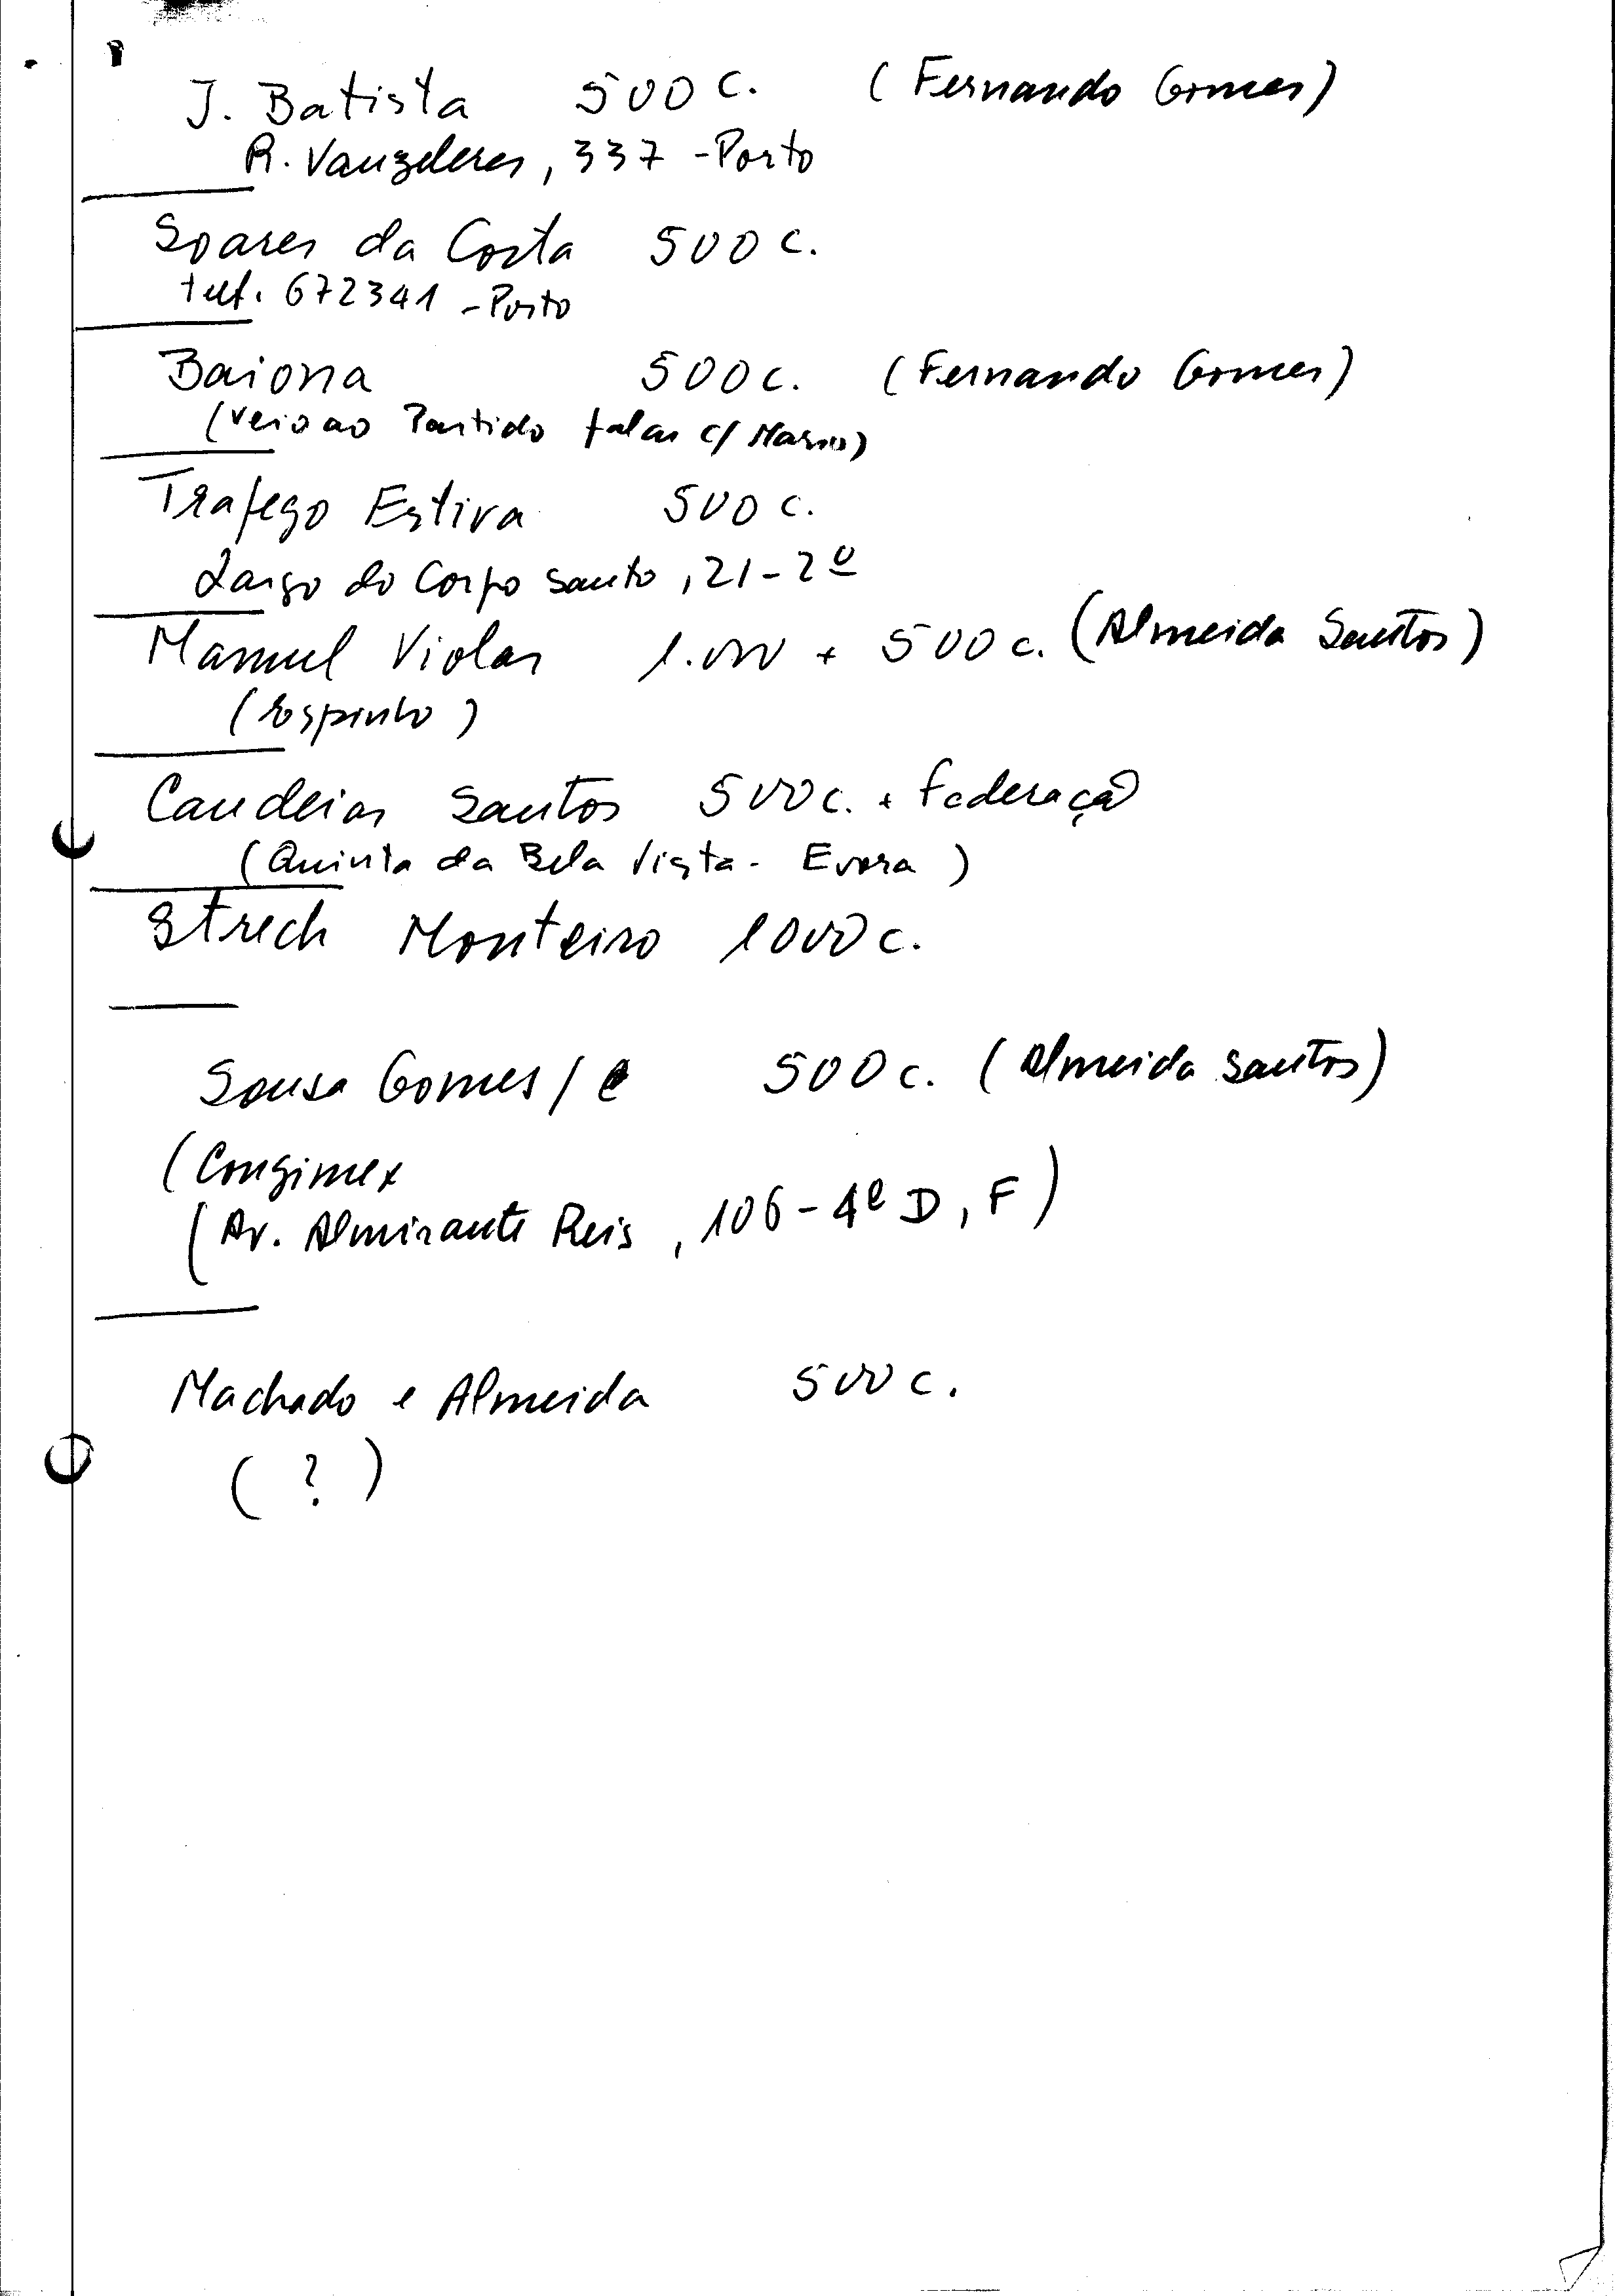 J. Batista 500 c. (Fernando Gomes)
R. Vanzeleres, 337 - Porto
Soares da Costa 500 c.
telf. 672341 - Porto
Baiona 500 c. (Fernando Gomes)
(veio ao Partido falar c/ Mario)
Trafego Estiva 500 c.
Largo do Corpo Santo, 21-2º
Manuel Violas 1.000 + 500 c. (Almeida Santos)
(Espinho)
Candeias Santos 500 c. + Federação
(Quinta da Bela Vista - Evora)
Strech Monteiro 1000 c.
Sousa Gomes / 500 c. (Almeida Santos)
(Congimex
(Av. Almirante Reis, 106 - 4º D, F)
Machado e Almeida 500 c.
(?)